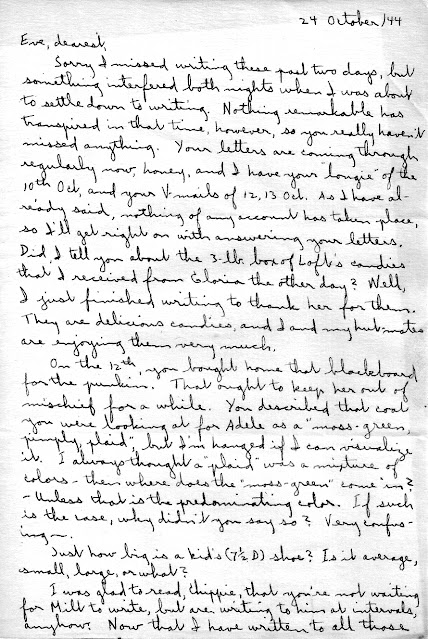 24 October/44
Eve, dearest,
Sorry I missed writing these past two days, but
something interfered both nights when I was about
to settle down to writing. Nothing remarkable has
transpired in that time, however, so you really haven't
missed anything. Your letters are coming through
regularly now, honey, and I have your "longie" of the
10th Oct, and your V-mails of 12, 13 Oct. As I have al-
ready said, nothing of any account has taken place,
so I'll get right on with answering your letters.
Did I tell you about the 3-lb. box of Loft's candies
that I received from Gloria the other day? Well,
I just finished writing to thank her for them.
They are delicious candies, and I and my hut-mates
are enjoying them very much.
On the 12th, you bought home that blackboard
for the punkin. That ought to keep her out of
mischief for a while. You described that coat
you were looking at for Adele as a "moss-green,
pimply, plaid", but I'm hanged if I can visualize
it. I always thought a "plaid" was a mixture of
colors - then where does the "moss-green" come in?
- Unless that is the predominating color. If such
is the case, why didn't you say so? Very confus-
ing~.
Just how big is a kid's (7½ D) shoe? Is it average,
small, large, or what?
I was glad to read, Chippie, that you're not waiting
for Milt to write, but are writing to him at intervals,
anyhow. Now that I have written to all those